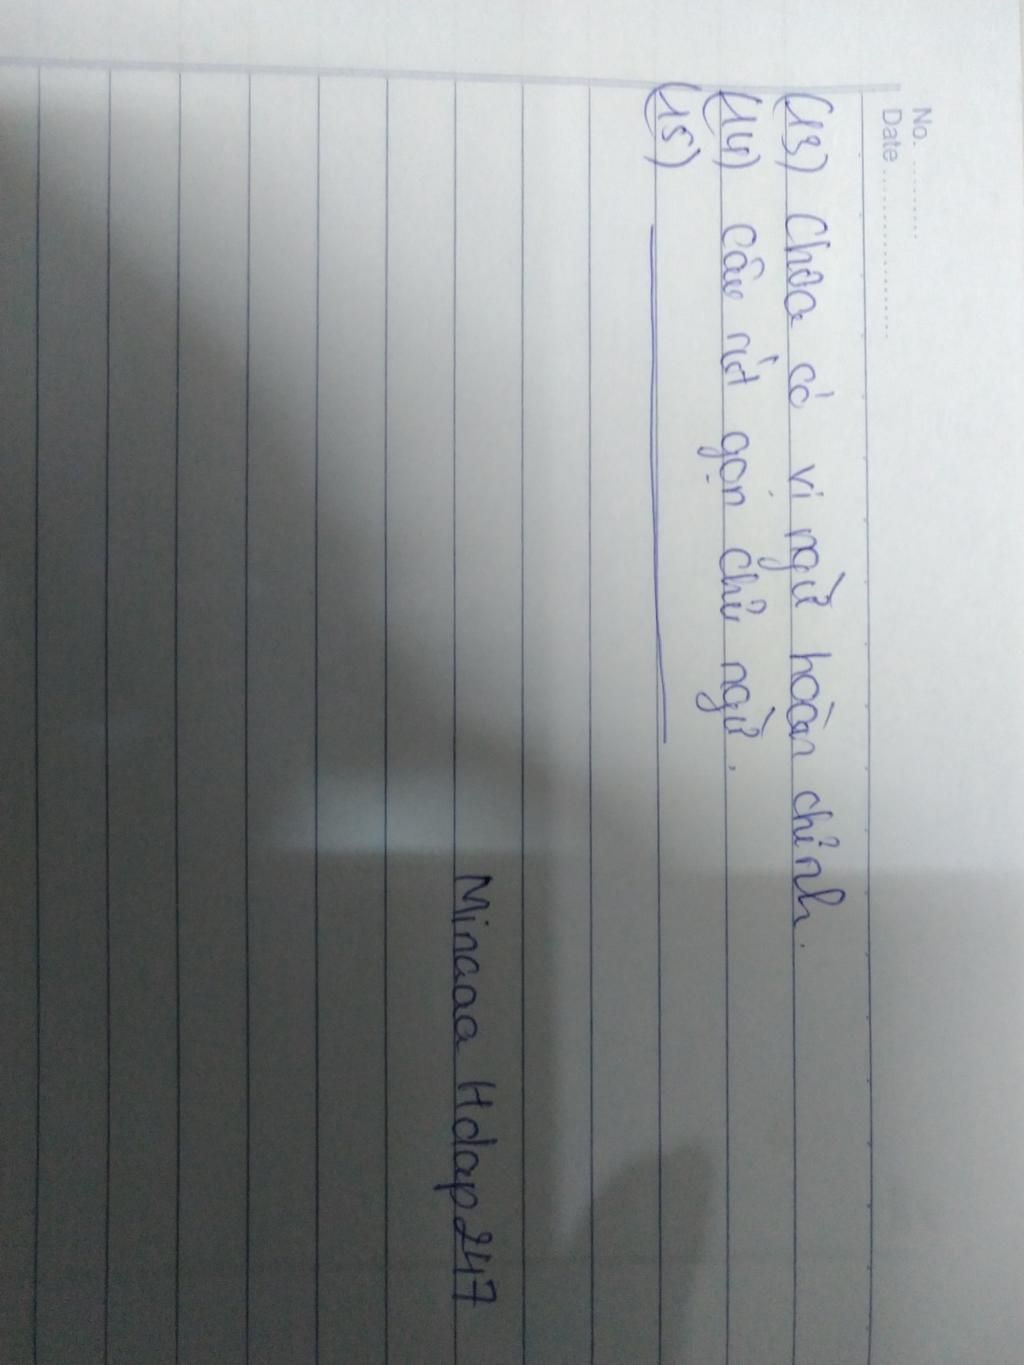 No. ...........
Date ......................
(13) Chưa có vị ngữ hoàn chỉnh.
(14) câu rút gọn chủ ngữ.
(15)
Minaaa Hdap247